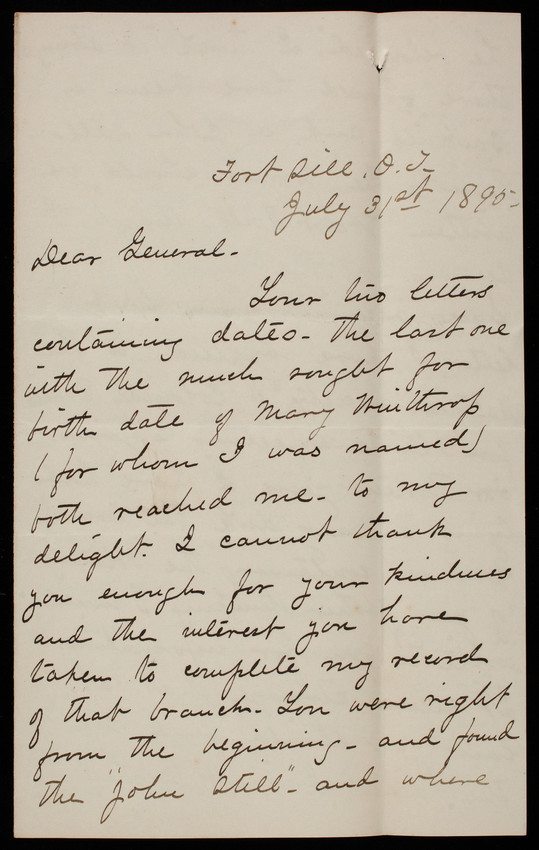 Fort Sill, O.T.
July 31st 1895-
Dear General-
Your two letters
containing dates- the last one
with the much sought for
birth date of Mary Winthrop
(for whom I was named)
both reached me- to my
delight. I cannot thank
you enough for your kindness
and the interest you have
taken to complete my record
of that branch- You were right
from the beginning- and found
the "John Still"- and where